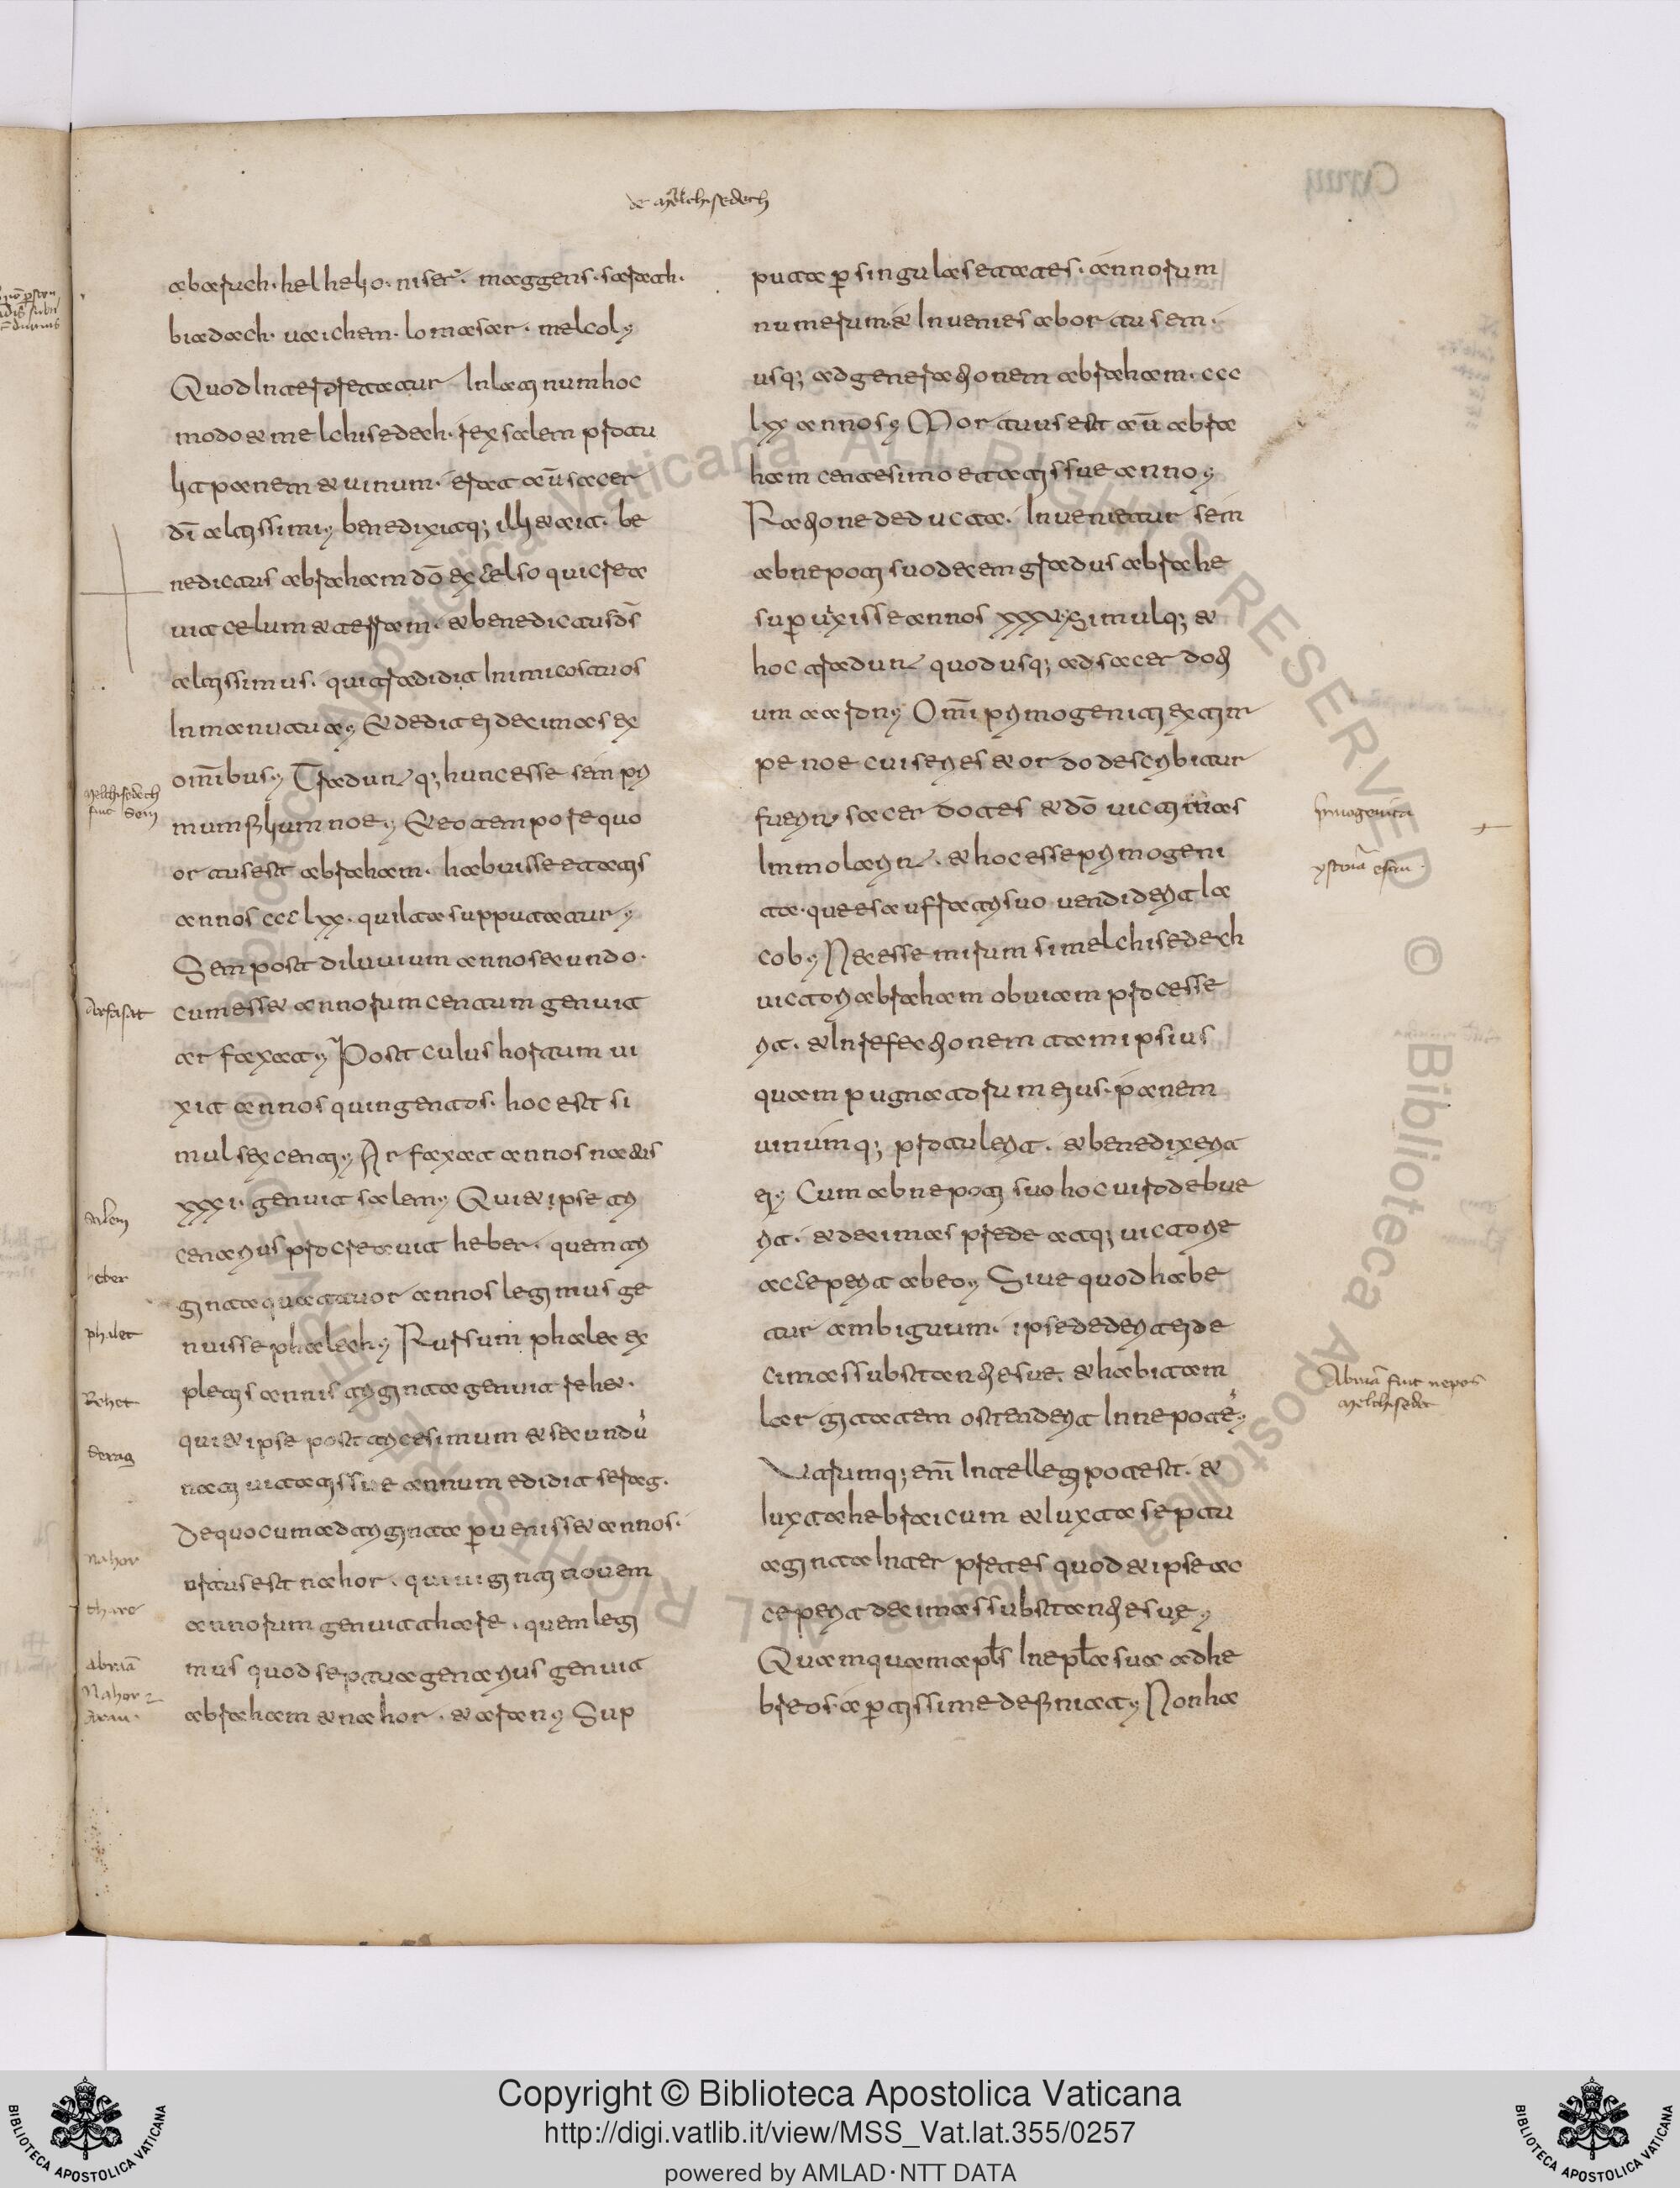 de melchisedech
abaruch. hel helio. niser. maggens. sarath.
biadach. uaichem. lomasar. melcol;
Quod Interpretatur In latinum hoc
modo & melchisedech. rex salem protu
lit panem & uinum. erat aū sacer
dī altissimi; benedixitq; illi & ait. be
nedictus abraham dō excelso qui crea
uit celum & terram. & benedictus ds̄
altissimus. qui tradidit Inimicos tuos
In manu tua; & dedit ei decimas ex
omībus; Tradunt q; hunc esse sém pri
mum filium noe; & eo tempore quo
ortus est abraham. habuisse etatis
annos cccxx. qui ita supputatur;
Sem post diluuium anno secundo.
cum ess& annorum centum genuit
arfaxat; Post cuius hortum ui
xit annos quingentos. hoc est si
mul sexcenti; Arfaxat annos natus
xxxi. genuit salem; Qui & ipse tri
cenarius procreauit heber. quem tri
ginta quattuor annos legimus ge
nuisse phalech; Rursum phalec ex
pletis annis triginta genuit rehe.
qui & ipse post tricesimum & secundū
natiuitatis sue annum edidit serag.
De quo cum ad triginta peruenisset annos.
ortus est nahor. qui uiginti nouem
annorum genuit thare. quem legi
mus quod septuagenarius genuit
abraham & nahor. & aran; Sup
puta p singulas etates. annorum
numerum. & Inuenies ab ortu sem.
usq; ad generationem abraham. ccc
lxx annos; Mortuus est aū abra
ham centesimo etatis sue anno;
Ratione deducta. Inuenietur sém
abnepoti suo decem gradus abrahe
superuixisse annos xxxv; Simulq; &
hoc tradunt quod usq; ad sacerdoti
um aaron; Omī primogeniti ex stir
pe noe cuius series & ordo describitur
fuerint sacerdotes & dō uictimas
Immolarint. & hoc esse primogeni
ta. que esau fratri suo uendiderit Ia
cob; Nec esse mirum si melchisedech
uictori abraham obuiam processe
rit. & In refectionem tam ipsius
quam pugnatorum eius. panem
uinumq; protulerit. & benedixerit
ei; Cum abnepoti suo hoc uiro debue
rit. & decimas prede atq; uictorie
acceperit ab eo; Siue quod habe
tur ambiguum. ipse dederit ei de
cimas substantie sue. & habitam
largitatem ostenderit In nepotē;
Vtrumq; enī Intellegi potest. &
Iuxta hebraicum & Iuxta septu
aginta Interpretes quod & ipse ac
ceperit decimas substantie sue;
Quamquam apls In epla sua ad he
breos. apertissime definiat; Non ha
melchisedech
fuit sem
Arfasat
salem
heber
phalet
Rehet
serug
Nahor
thare
abrāā
Nahor
Aran.
primogenita
ystoria esau.
Abrāā fuit nepos
melchisedec
Copyright © Biblioteca Apostolica Vaticana
http://digi.vatlib.it/view/MSS_Vat.lat.355/0257
powered by AMLAD·NTT DATA
BIBLIOTECA APOSTOLICA VATICANA
BIBLIOTECA APOSTOLICA VATICANA